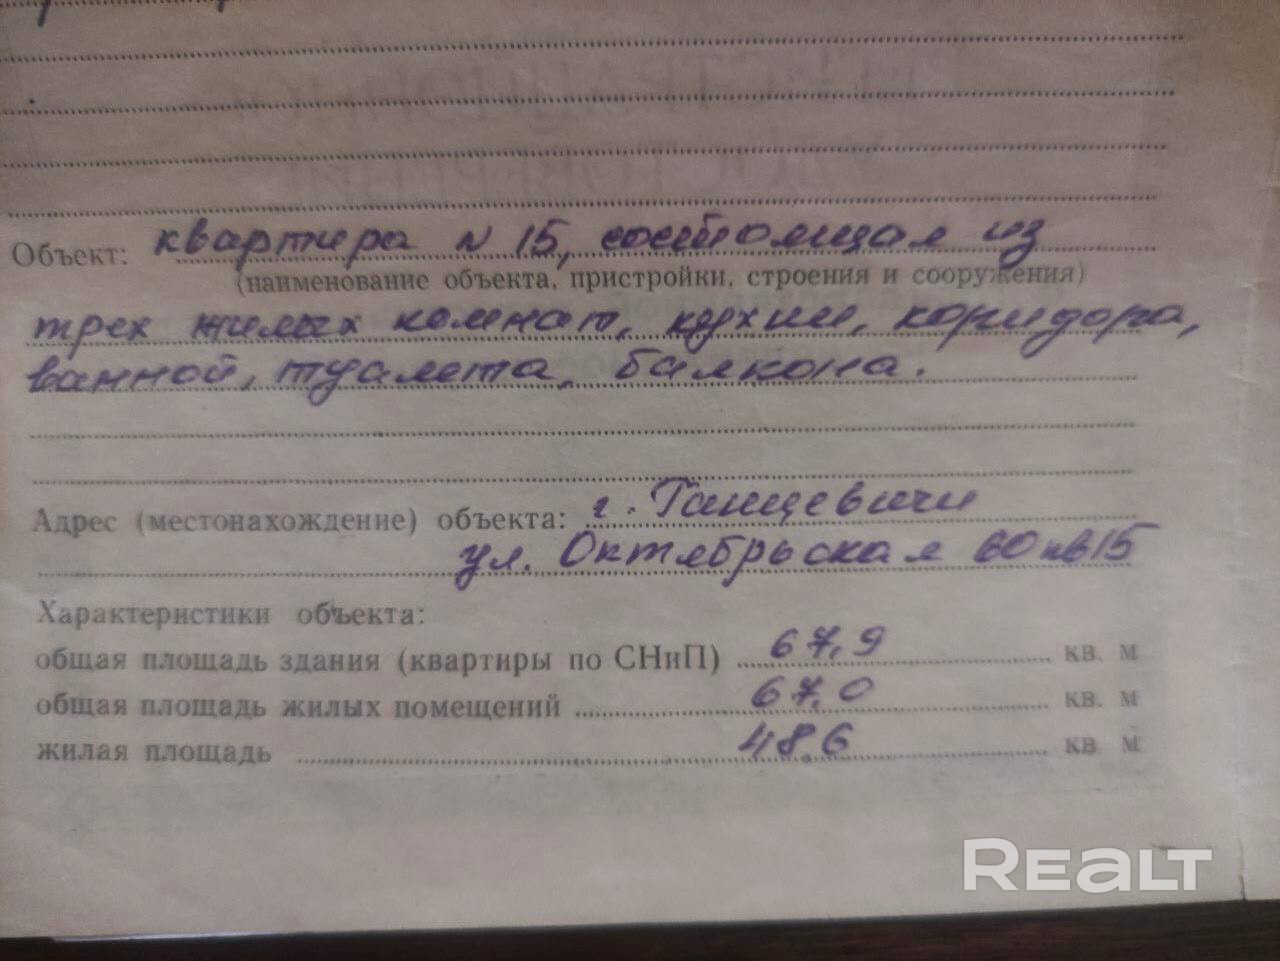 Объект: квартира N 15, состоящая из
(наименование объекта, пристройки, строения и сооружения)
трех жилых комнат, кухни, коридора,
ванной, туалета, балкона.
Адрес (местонахождение) объекта: г. Ганцевичи
ул. Октябрьская 60 кв 15
Характеристики объекта:
общая площадь здания (квартиры по СНиП) 67,9 кв. м
общая площадь жилых помещений 67,0 кв. м
жилая площадь 48,6 кв м
REALT